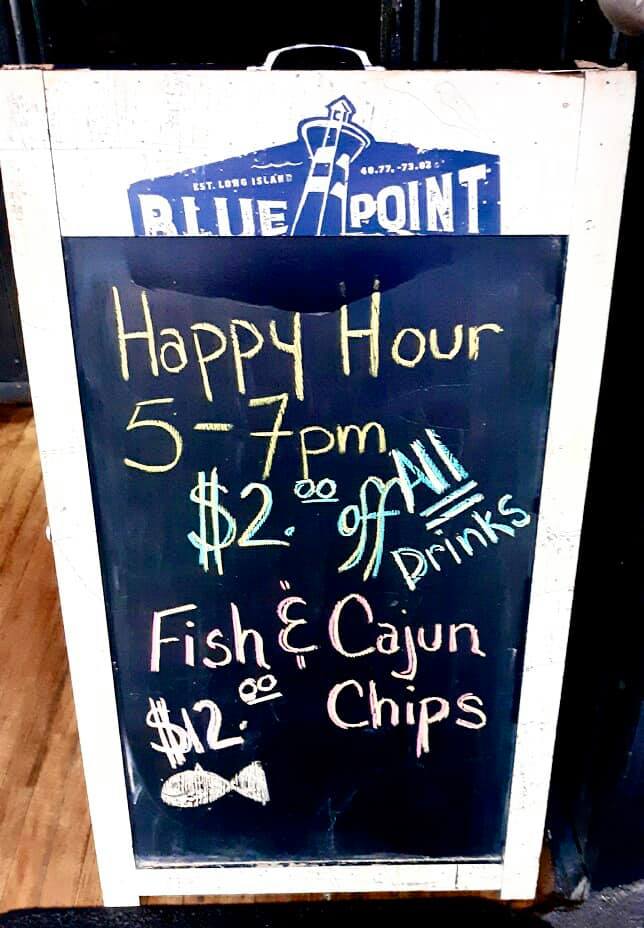 EST. LONG ISLAND 40.77, -73.02
BLUE POINT
Happy Hour
5-7pm
$2.00 off All Drinks
Fish & Cajun
$12.00 Chips